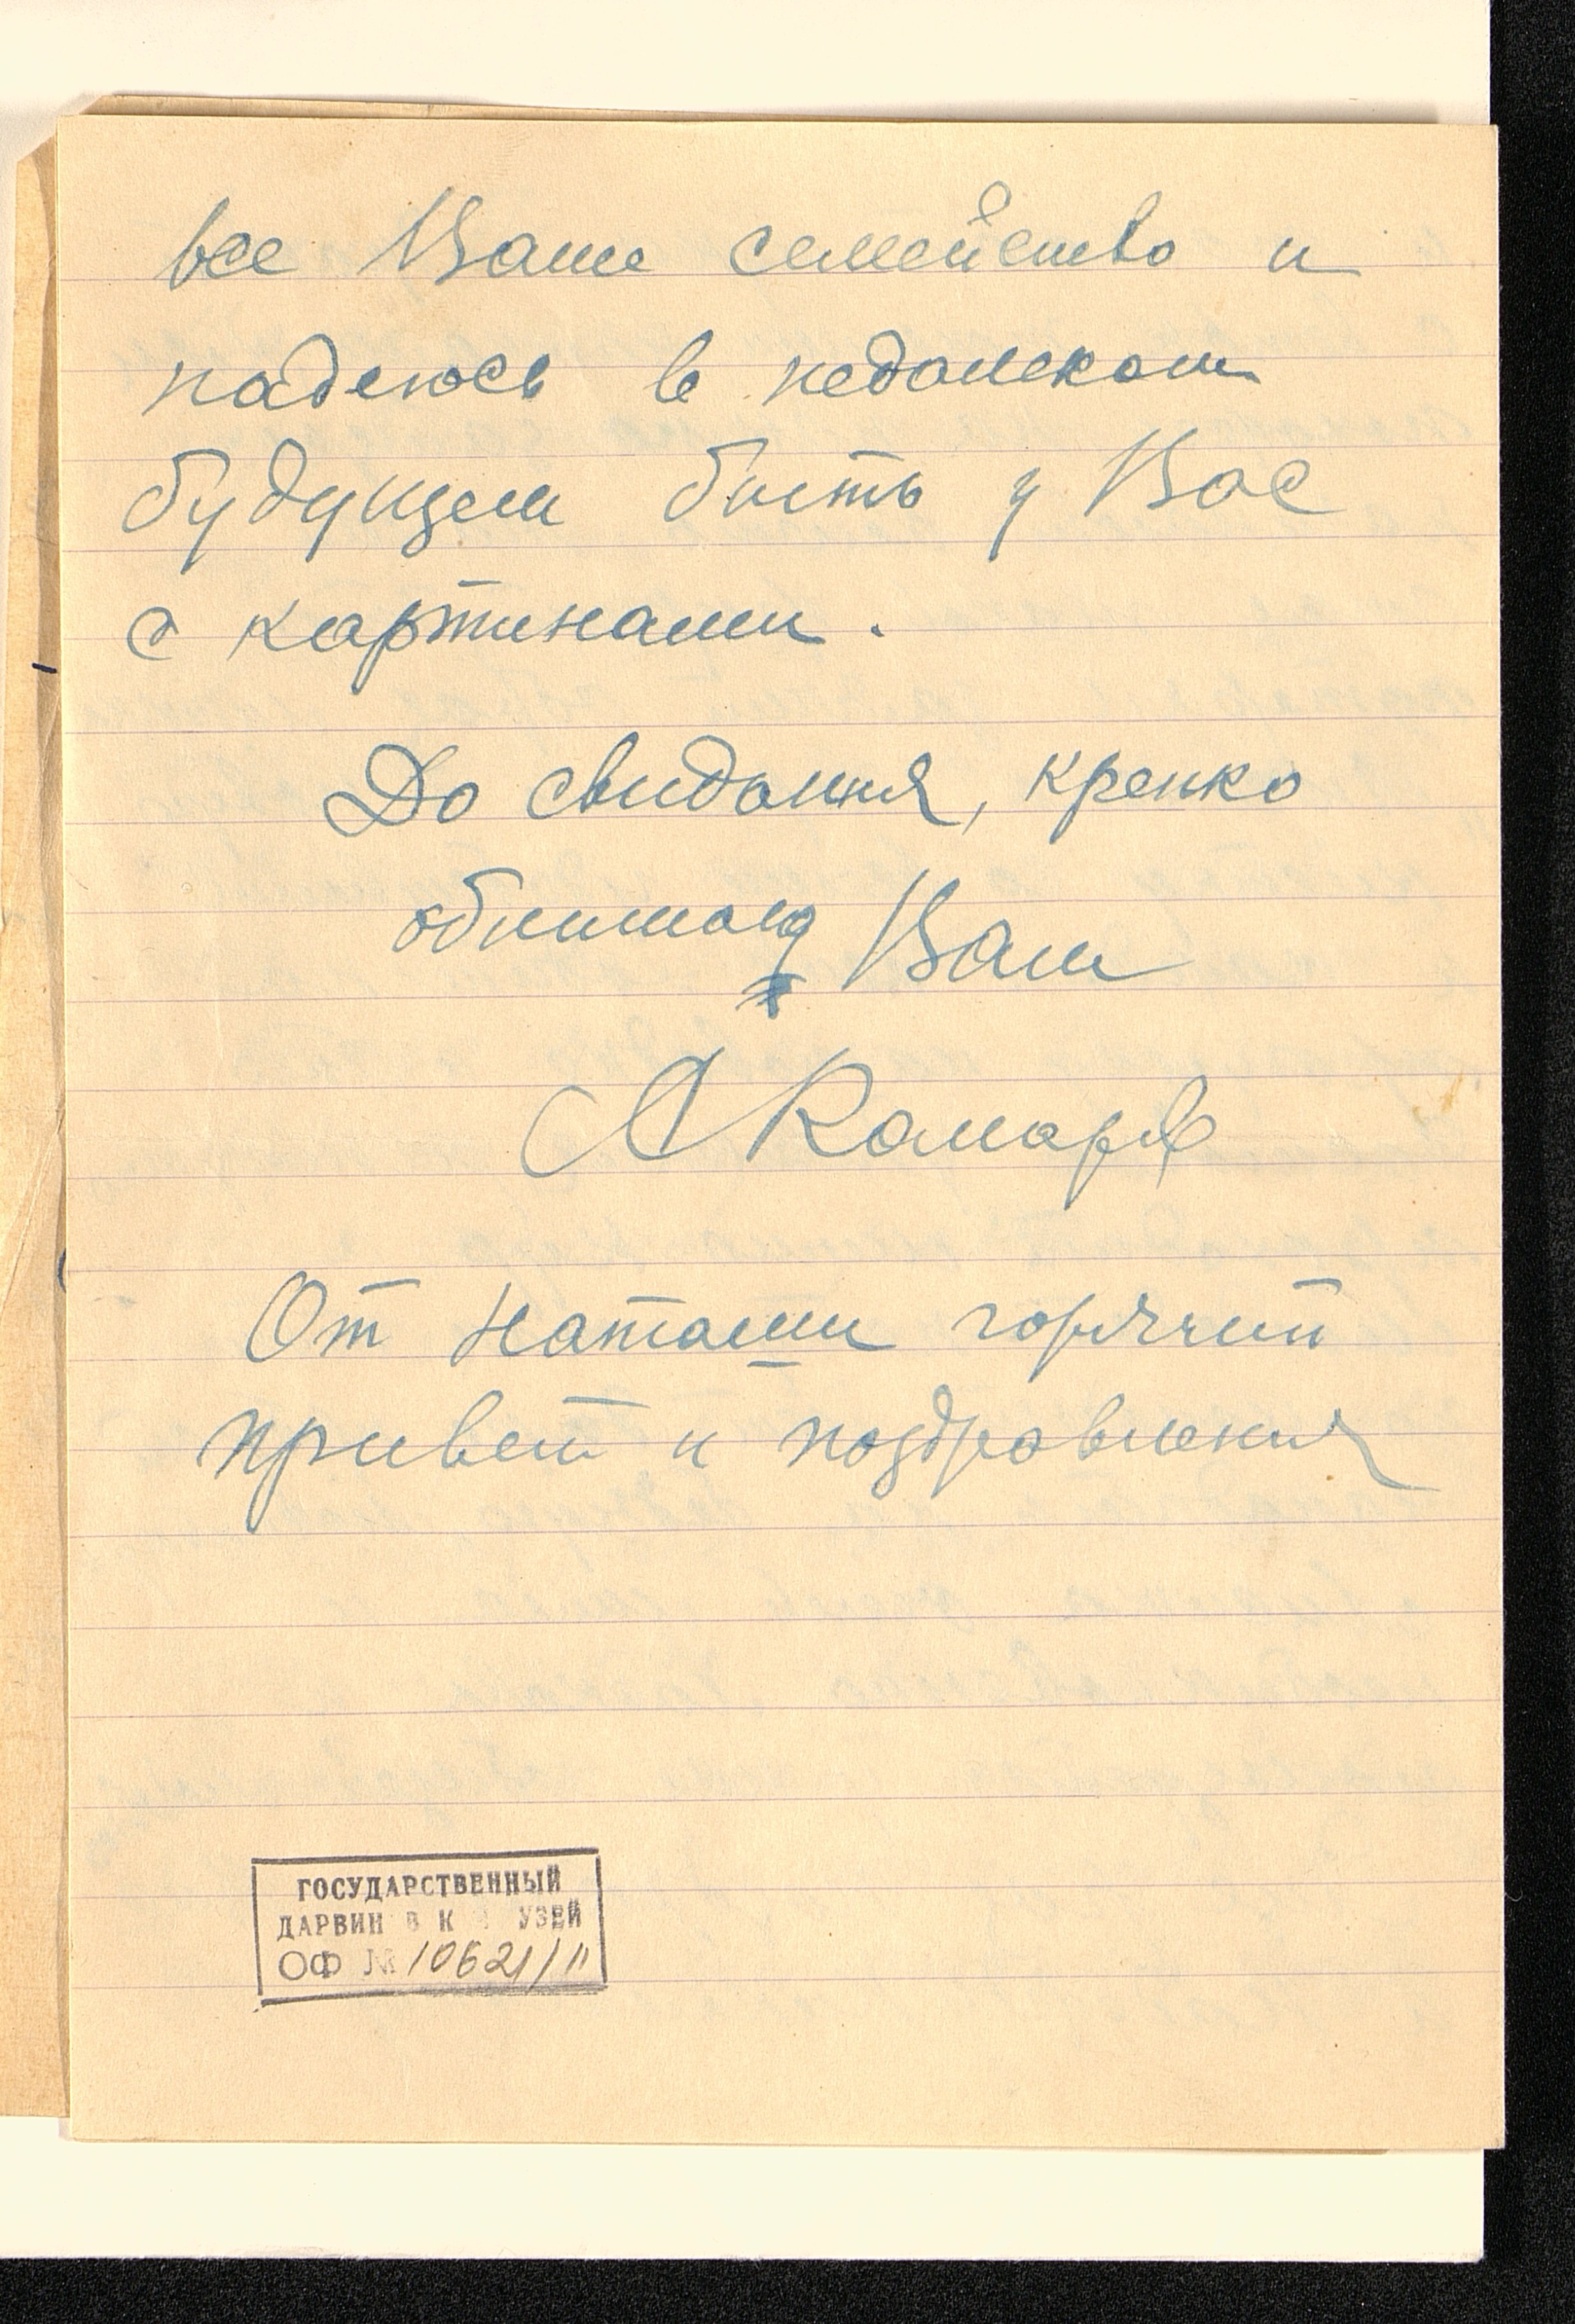 все Ваше семейство и
надеюсь в недалеком
будущем быть у Вас
с картинами.
До свидания, крепко
обнимаю Ваш
А Комаров
От Наташи горячий
привет и поздравления
ГОСУДАРСТВЕННЫЙ
ДАРВИН В К УЗЕЙ
ОФ № 10621/11